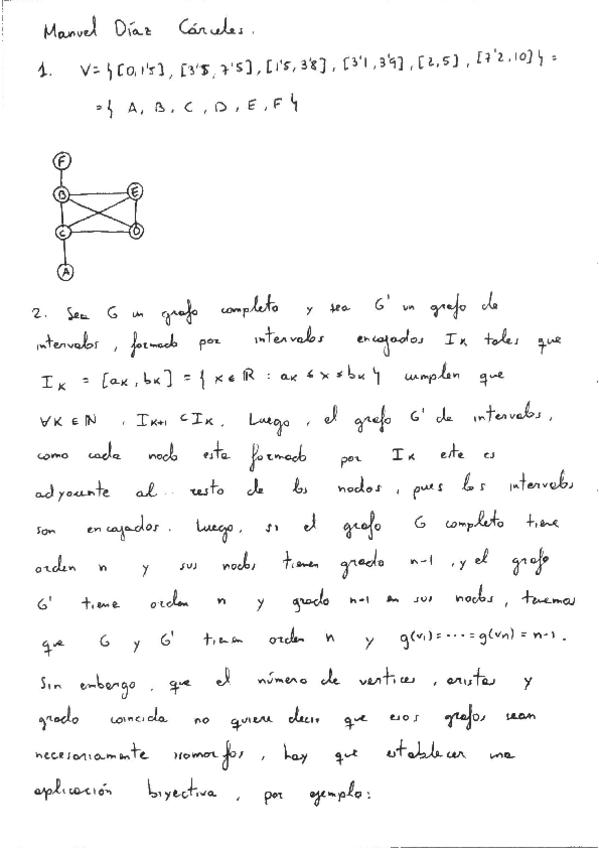 Manuel Díaz Cárceles.
1. V = { [0,1'5], [3'5, 7'5], [1'5, 3'8], [3'1, 3'9], [2,5], [7'2,10] } =
= { A, B, C, D, E, F }
F
B E
C D
A
2. Sea G un grafo completo y sea G' un grafo de
intervalos, formado por intervalos encajados Iк tales que
Iк = [aк, bк] = { x ∈ ℝ : aк ≤ x ≤ bк } cumplen que
∀K ∈ ℕ , Iк+1 ⊂ Iк. Luego, el grafo G' de intervalos,
como cada nodo esta formado por Iк este es
adyacente al resto de los nodos, pues los intervalos
son encajados. Luego, si el grafo G completo tiene
orden n y sus nodos tienen grado n-1, y el grafo
G' tiene orden n y grado n-1 en sus nodos, tenemos
que G y G' tienen orden n y g(v1) = ... = g(vn) = n-1.
Sin embargo, que el número de vertices, aristas y
grado coincida no quiere decir que esos grafos sean
necesariamente isomorfos, hay que establecer una
aplicación biyectiva, por ejemplo: